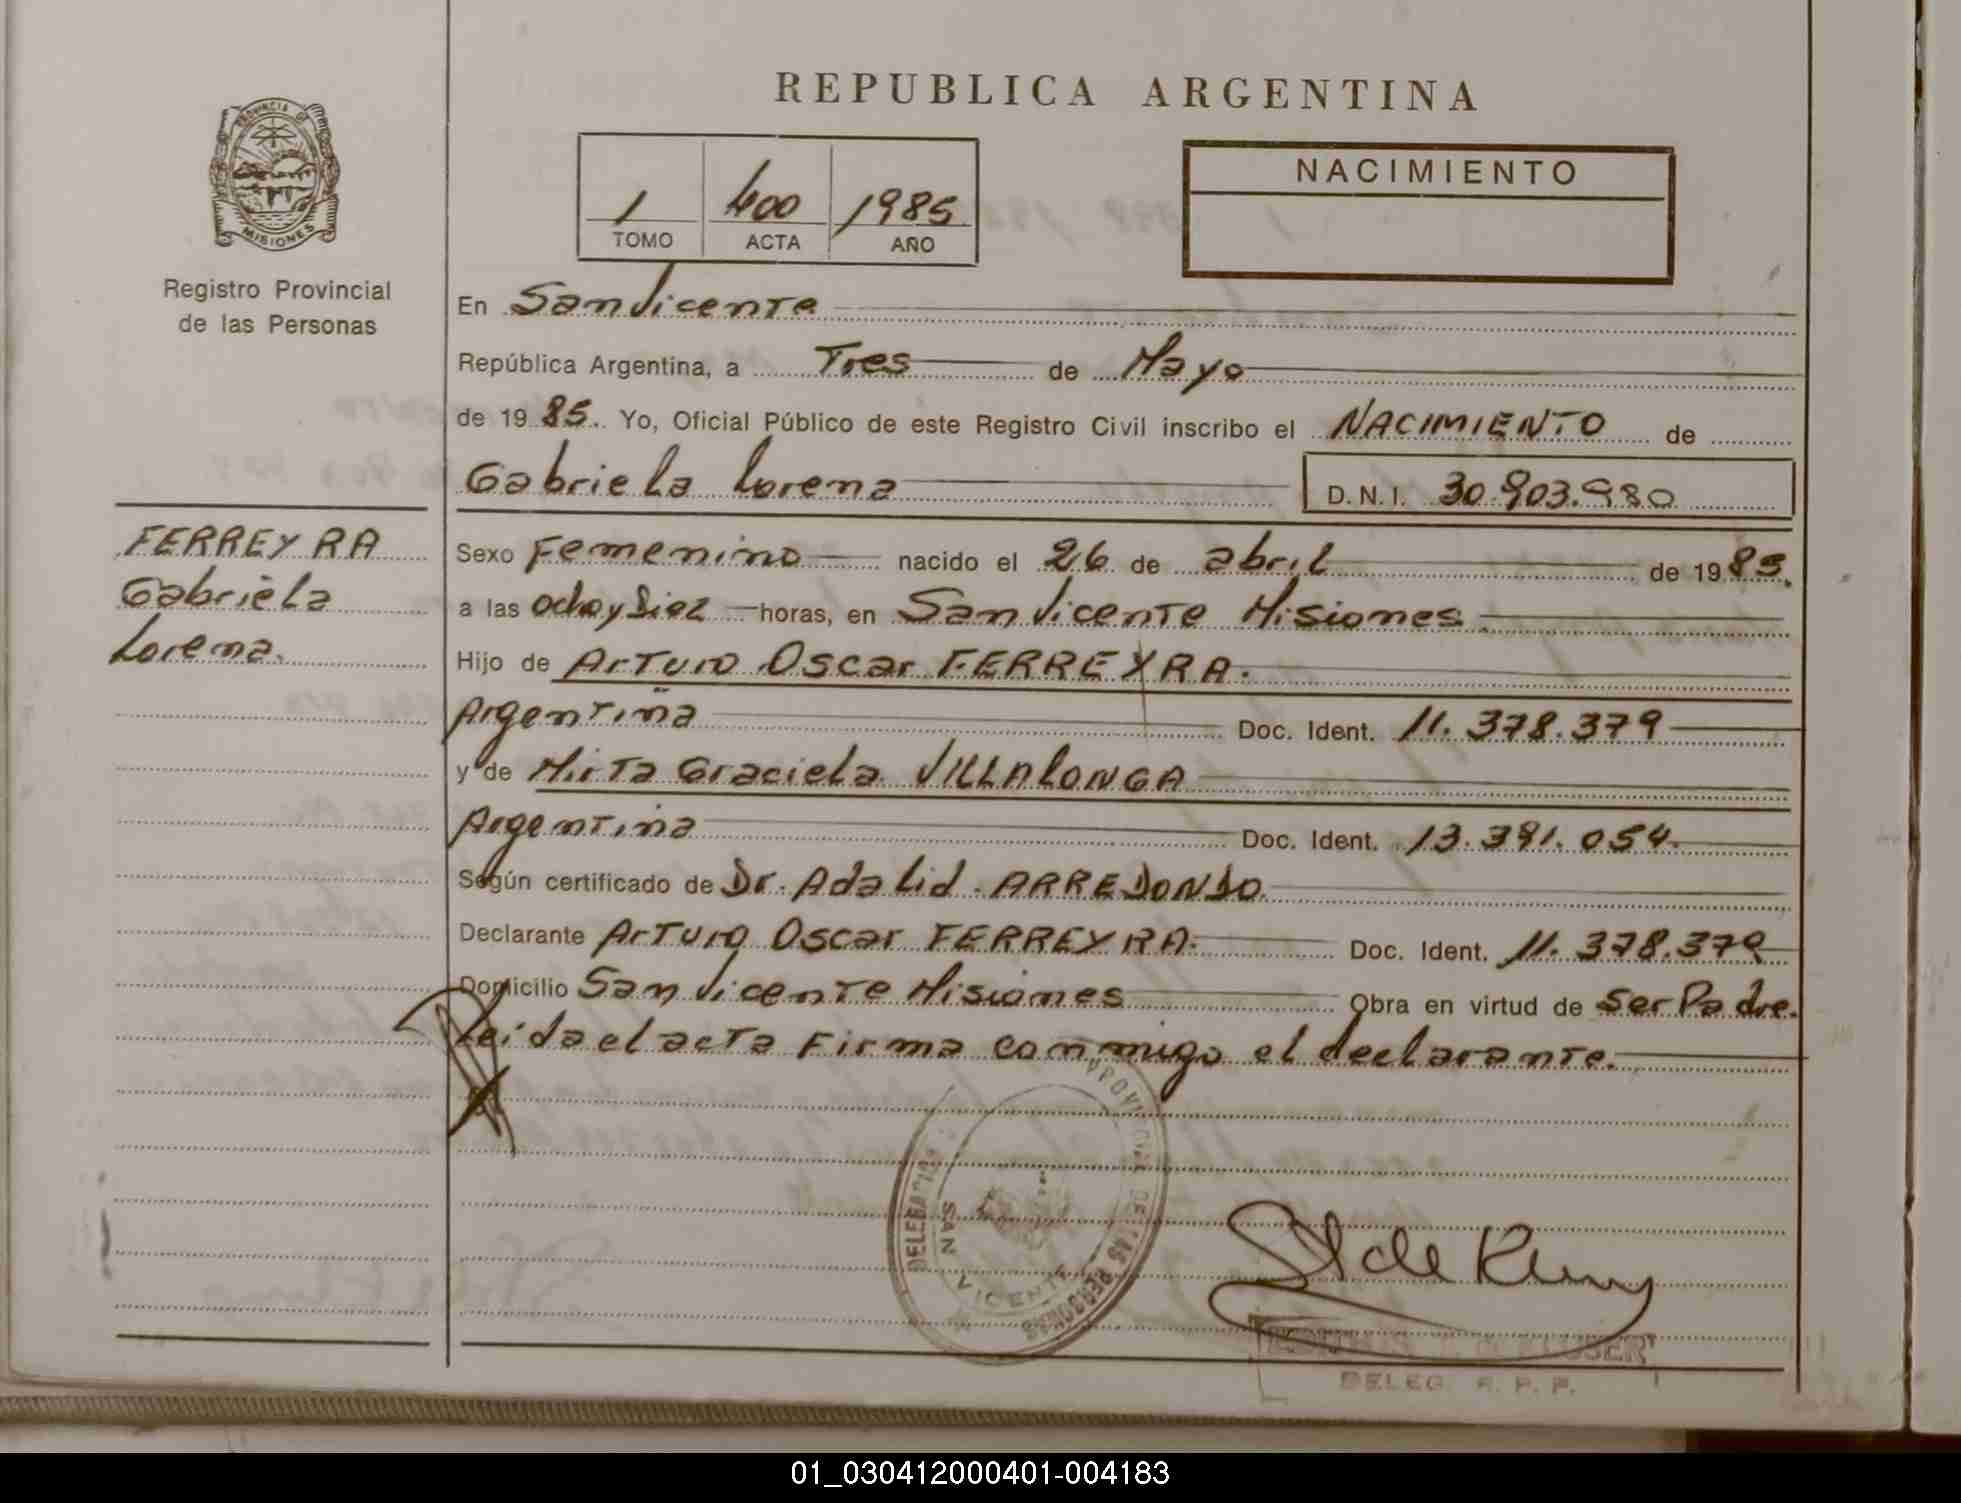 REPUBLICA ARGENTINA
PROVINCIA DE
MISIONES
Registro Provincial
de las Personas
1 400 1985
TOMO ACTA AÑO
NACIMIENTO
En San Vicente
República Argentina, a Tres de Mayo
de 1985. Yo, Oficial Público de este Registro Civil inscribo el NACIMIENTO de
Gabriela Lorena D.N.I. 30.903.980
FERREYRA
Gabriela
Lorena.
Sexo Femenino nacido el 26 de abril de 1985.
a las ocho y Diez horas, en San Vicente Misiones
Hijo de Arturo Oscar FERREYRA.
Argentina Doc. Ident. 11.378.379
y de Mirta Graciela VILLALONGA
Argentina Doc. Ident. 13.391.054.
Según certificado de Dr. Adalid ARREDONDO.
Declarante Arturo Oscar FERREYRA. Doc. Ident. 11.378.379
Domicilio San Vicente Misiones Obra en virtud de Ser Padre.
Leída el acta Firma conmigo el declarante.
DELEGACION
PROVINCIAL DE LAS PERSONAS
SAN VICENTE
DELEG. R. P. P.
01_030412000401-004183